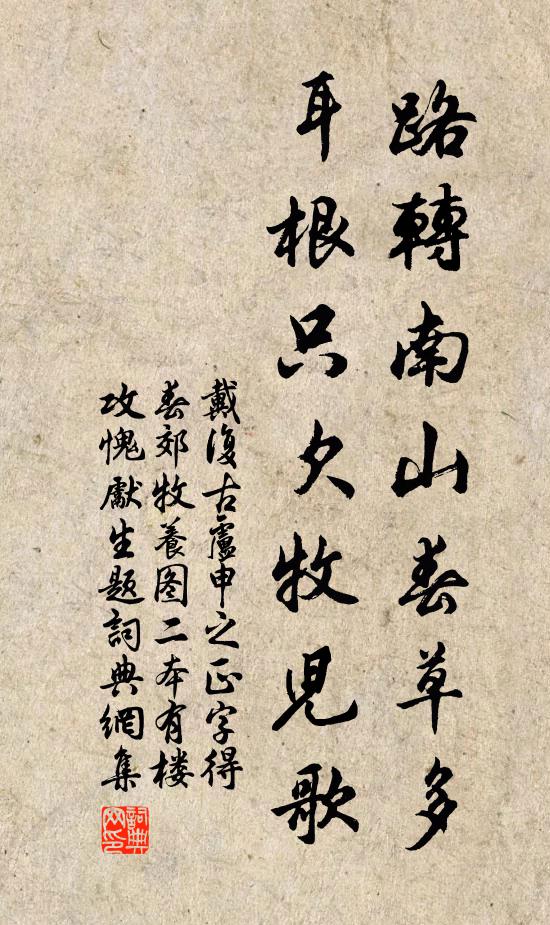 路轉南山春草多
耳根只欠牧兒歌
戴復古盧申之正字得
春郊牧養图二本有楼
攻愧獻生題詞典網集
詞典
网印